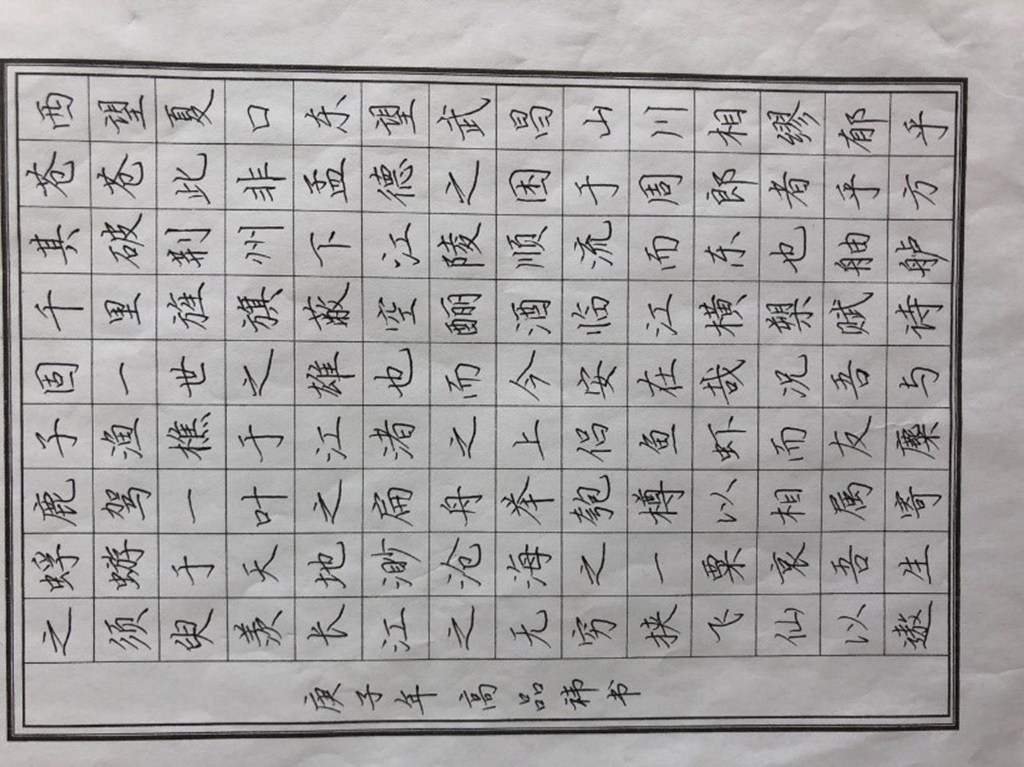 西望夏口东望武昌山川相缪郁乎
苍苍此非孟德之困于周郎者乎方
其破荆州下江陵顺流而东也舳舻
千里旌旗蔽空酾酒临江横槊赋诗
固一世之雄也而今安在哉况吾与
子渔樵于江渚之上侣鱼虾而友麋
鹿驾一叶之扁舟举匏樽以相属寄
蜉蝣于天地渺沧海之一粟哀吾生
之须臾羡长江之无穷挟飞仙以遨
庚子年 高品祎书